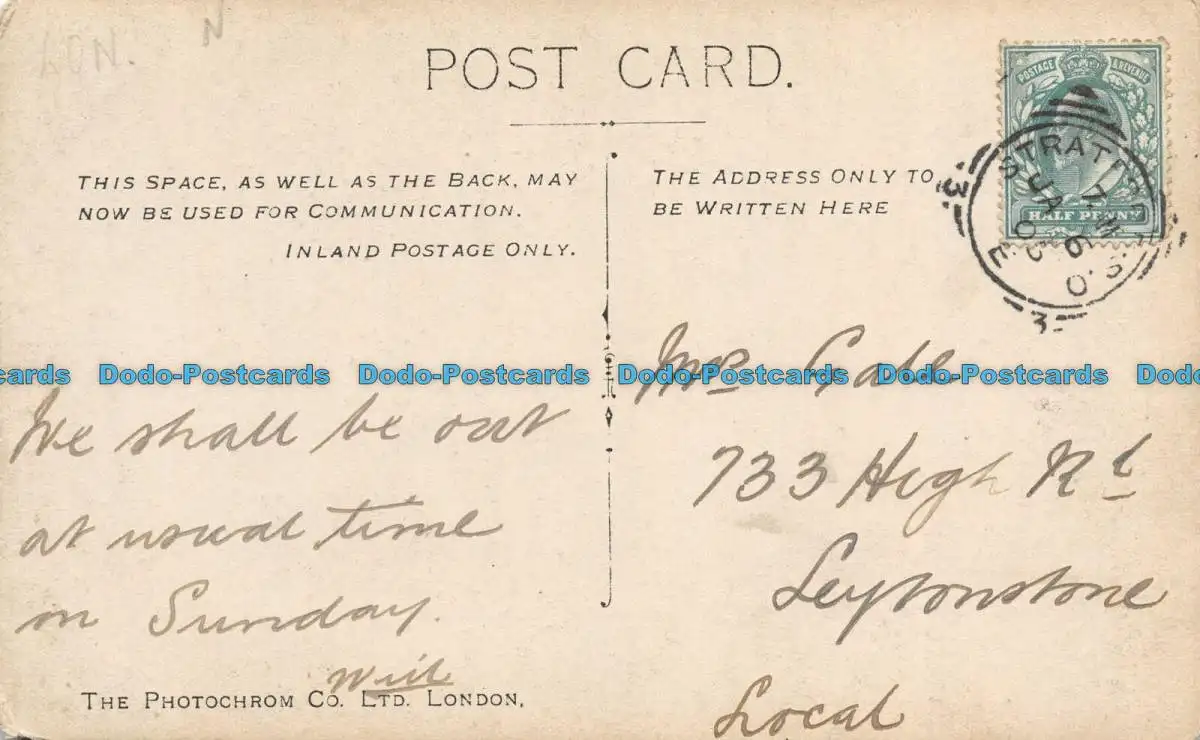 LON.
N
POST CARD.
THIS SPACE, AS WELL AS THE BACK, MAY
NOW BE USED FOR COMMUNICATION.
INLAND POSTAGE ONLY.
THE ADDRESS ONLY TO
BE WRITTEN HERE
POSTAGE & REVENUE
HALF PENNY
STRATFORD
E
7
JA 6
05
3
3
We shall be out
at usual time
on Sunday.
Will
Mrs Gale
733 High Rd
Leytonstone
Local
THE PHOTOCHROM CO. LTD. LONDON,
Dodo-Postcards Dodo-Postcards Dodo-Postcards Dodo-Postcards